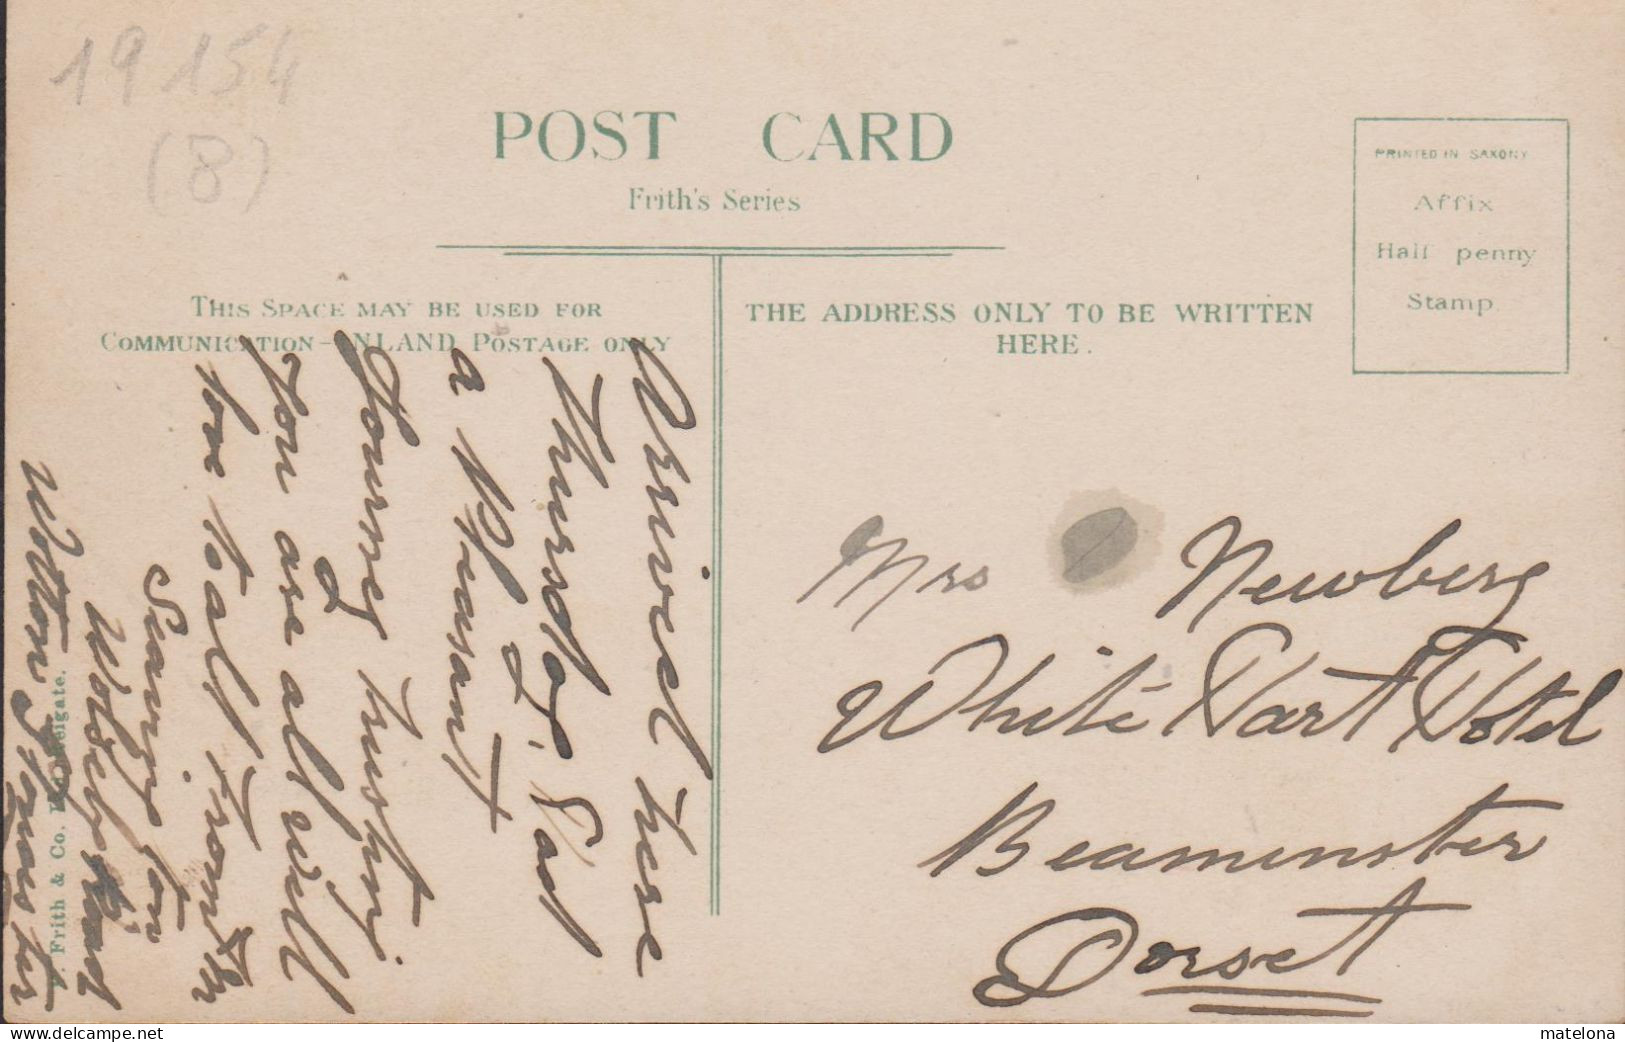 19154
(8)
POST CARD
Frith's Series
PRINTED IN SAXONY
Affix
Half penny
Stamp
THIS SPACE MAY BE USED FOR
COMMUNICATION - INLAND POSTAGE ONLY
THE ADDRESS ONLY TO BE WRITTEN
HERE.
Arrived here
Thursday. Had
a Pleasant
Journey trusting
you are all well
love to all from
Wotton
F. Frith & Co. Reigate.
Mrs Newberg
White Hart Hotel
Beaminster
Dorset
matelona